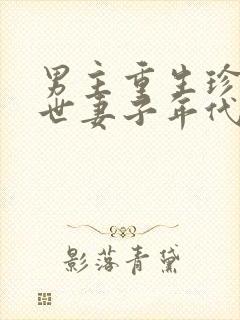 男主重生珍
世妻子年代
影落青黛